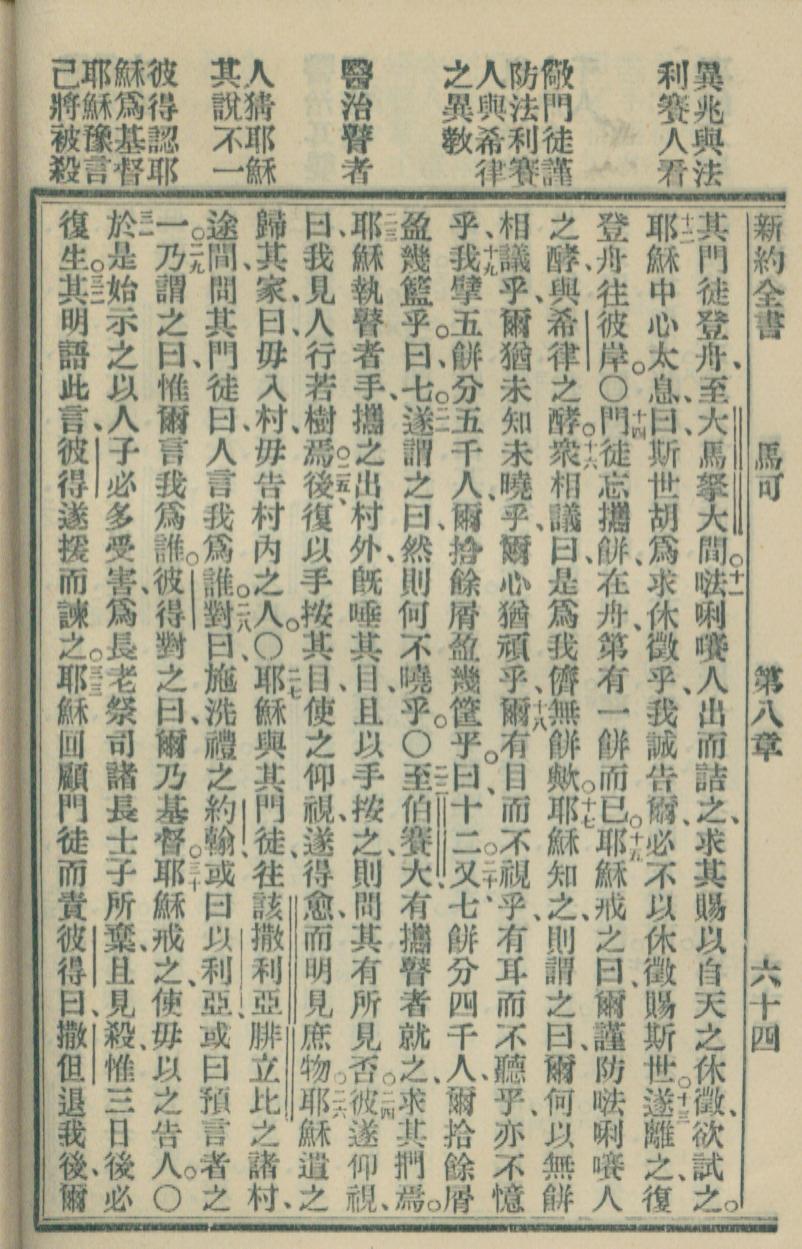 新約全書 馬可 第八章 六十四
異兆與法
利賽人看
儆門徒謹
防法利賽
人與希律
之異教
醫治瞽者
人猜耶穌
其說不一
彼得認耶
穌爲基督
耶穌豫言
己將被殺
其門徒登舟、至大馬拏大間。十一㗲唎㘔人出而詰之、求其賜以自天之休徵、欲試之。
十二耶穌中心太息、曰、斯世胡爲求休徵乎、我誠告爾、必不以休徵賜斯世。十三遂離之、復
登舟往彼岸。〇十四門徒忘攜餅、在舟、第有一餅而已。十五耶穌戒之曰、爾謹防㗲唎㘔人
之酵、與希律之酵。十六衆相議曰、是爲我儕無餅歟。十七耶穌知之、則謂之曰、爾何以無餅
相議乎、爾猶未知未曉乎、爾心猶頑乎、十八爾有目而不視乎、有耳而不聽乎、亦不憶
乎、十九我擘五餅分五千人、爾拾餘屑盈幾筐乎。曰、十二。二十又七餅分四千人、爾拾餘屑
盈幾籃乎。曰、七。二一遂謂之曰、然則何不曉乎。〇二二至伯賽大、有攜瞽者就之、求其捫焉。
二三耶穌執瞽者手、攜之出村外、旣唾其目、且以手按之、則問其有所見否。二四彼遂仰視、
曰、我見人行若樹焉。二五後、復以手按其目、使之仰視、遂得愈、而明見庶物。二六耶穌遣之
歸其家、曰、毋入村、毋告村內之人。〇二七耶穌與其門徒、往該撒利亞腓立比之諸村、
途間、問其門徒曰、人言我爲誰。二八對曰、施洗禮之約翰、或曰以利亞、或曰預言者之
一。二九乃謂之曰、惟爾言我爲誰。彼得對之曰、爾乃基督。三十耶穌戒之、使毋以之告人。〇
三一於是始示之以人子必多受害、爲長老祭司諸長士子所棄、且見殺、惟三日後必
復生。三二其明語此言、彼得遂援而諫之。三三耶穌回顧門徒、而責彼得曰、撒但退我後、爾